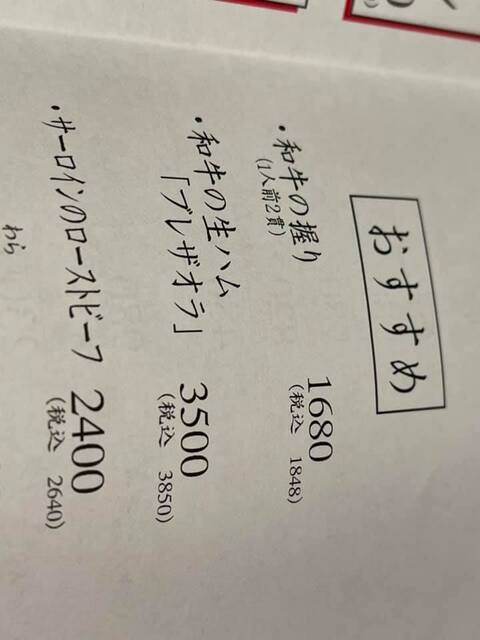 おすすめ
・和牛の握り
(1人前2貫)
1680
(税込 1848)
・和牛の生ハム
「ブレザオラ」
3500
(税込 3850)
・サーロインのローストビーフ
2400
(税込 2640)
わら